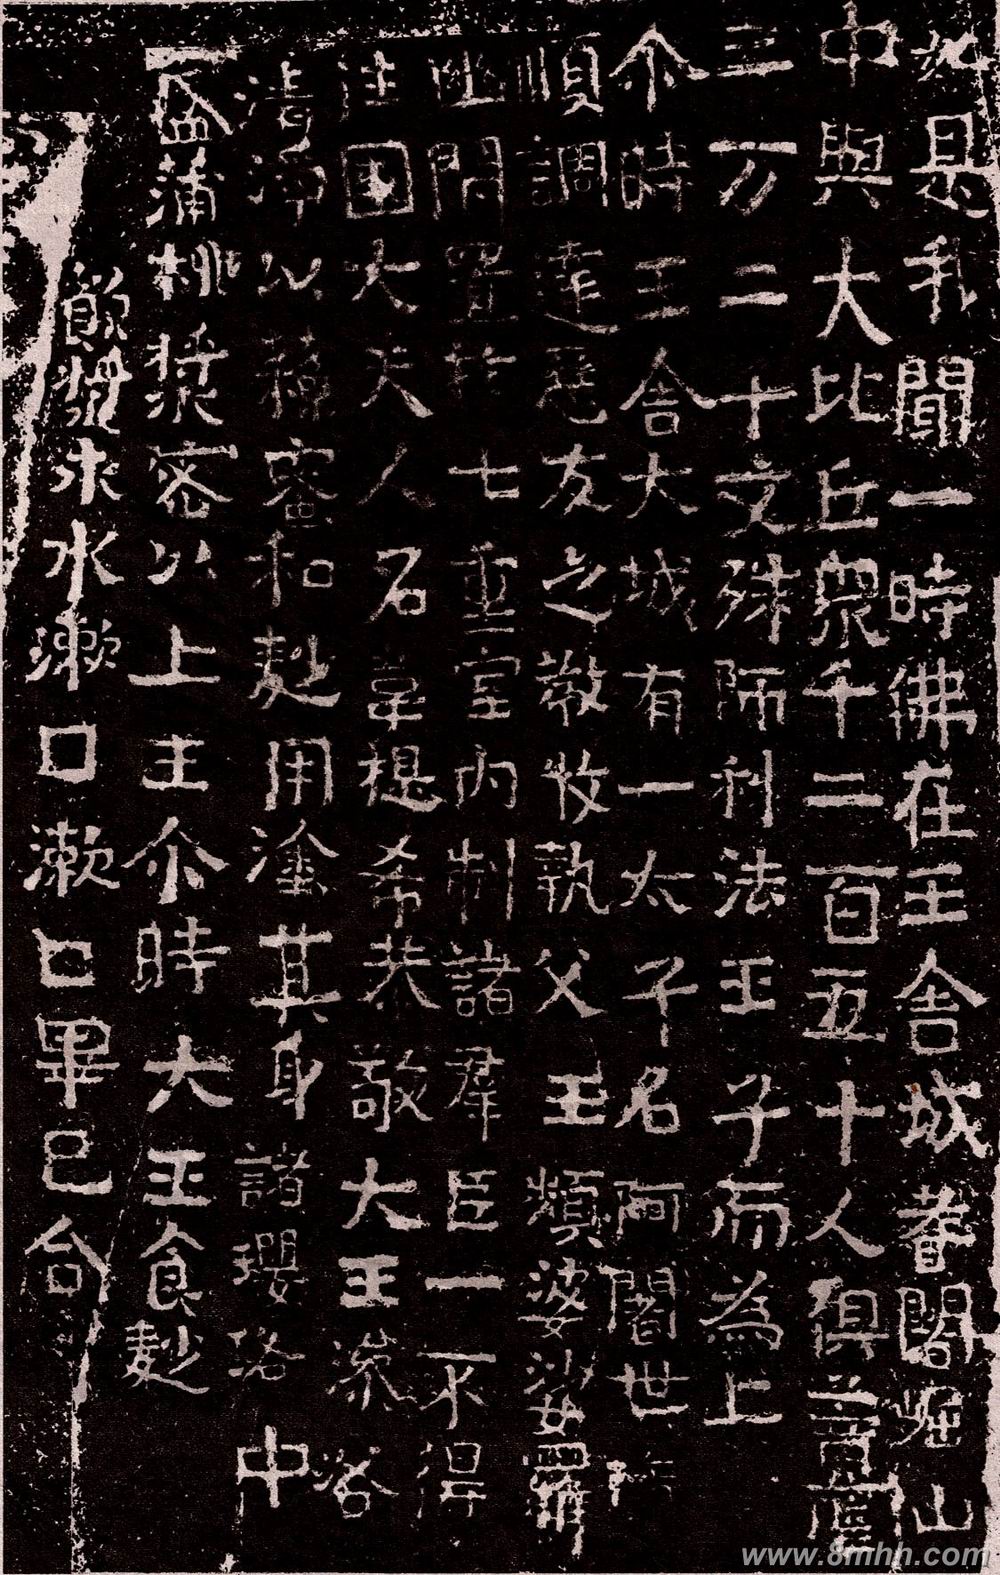 如是我聞一時佛在王舍城耆闍崛山
中與大比丘衆千二百五十人俱菩薩
三万二十文殊師利法王子而為上
尒時王舍大城有一太子名阿闍世
順調達惡友之教收執父王頻婆娑羅
幽閇置於七重室內制諸羣臣一不得
往国大夫人名韋提希恭敬大王澡浴
清淨以蘇蜜和麨用塗其身諸瓔珞中
盛蒲桃漿密以上王尒時大王食麨
飲漿求水漱口漱口畢已合
www.8mhh.com